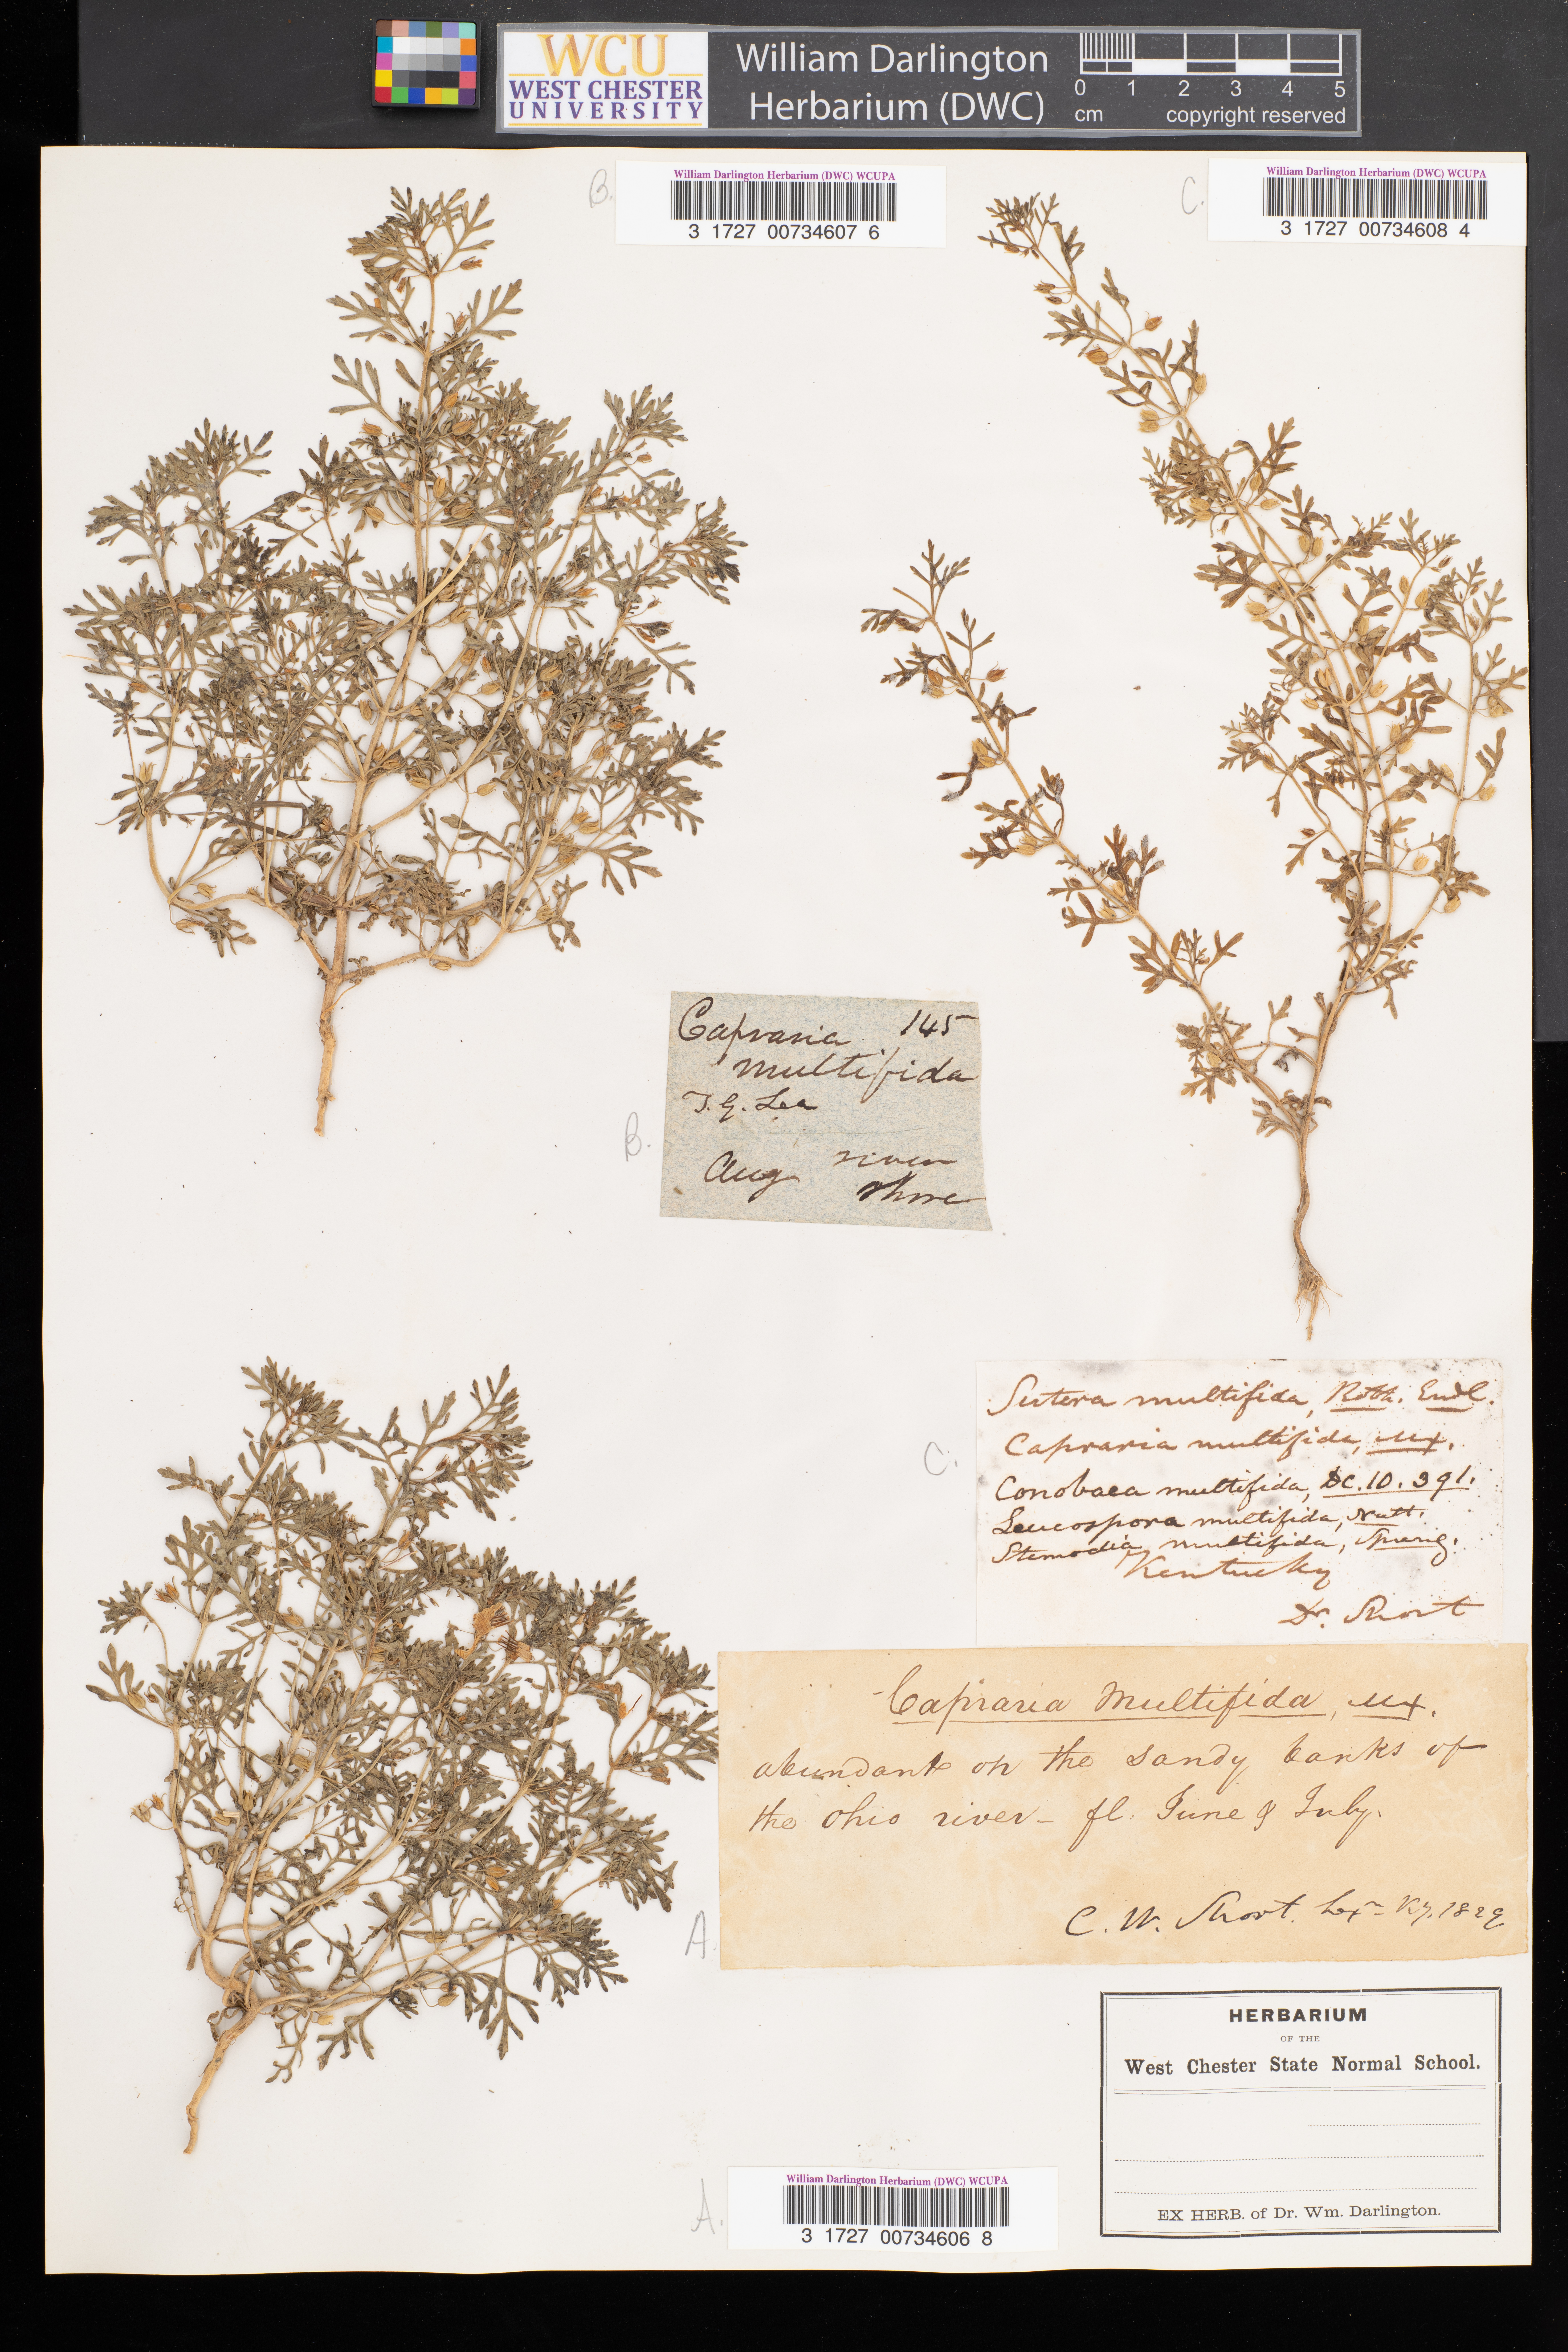 WCU
WEST CHESTER
UNIVERSITY
William Darlington
Herbarium (DWC)
0 1 2 3 4 5
cm copyright reserved
B.
William Darlington Herbarium (DWC) WCUPA
3 1727 00734607 6
C.
William Darlington Herbarium (DWC) WCUPA
3 1727 00734608 4
Capraria 145
multifida
T. G. Lea
Aug river
shore
B.
C.
Sutera multifida, Roth. Endl.
Capraria multifida, Mx.
Conobaea multifida, DC. 10. 391.
Leucospora multifida, Nutt.
Stemodia multifida, Spreng.
Kentucky
Dr. Short
Capraria Multifida, Mx.
abundant on the sandy banks of
the Ohio river - fl. June & July.
C. W. Short. Lexn Ky. 1829
A.
HERBARIUM
OF THE
West Chester State Normal School.
EX HERB. of Dr. Wm. Darlington.
A.
William Darlington Herbarium (DWC) WCUPA
3 1727 00734606 8